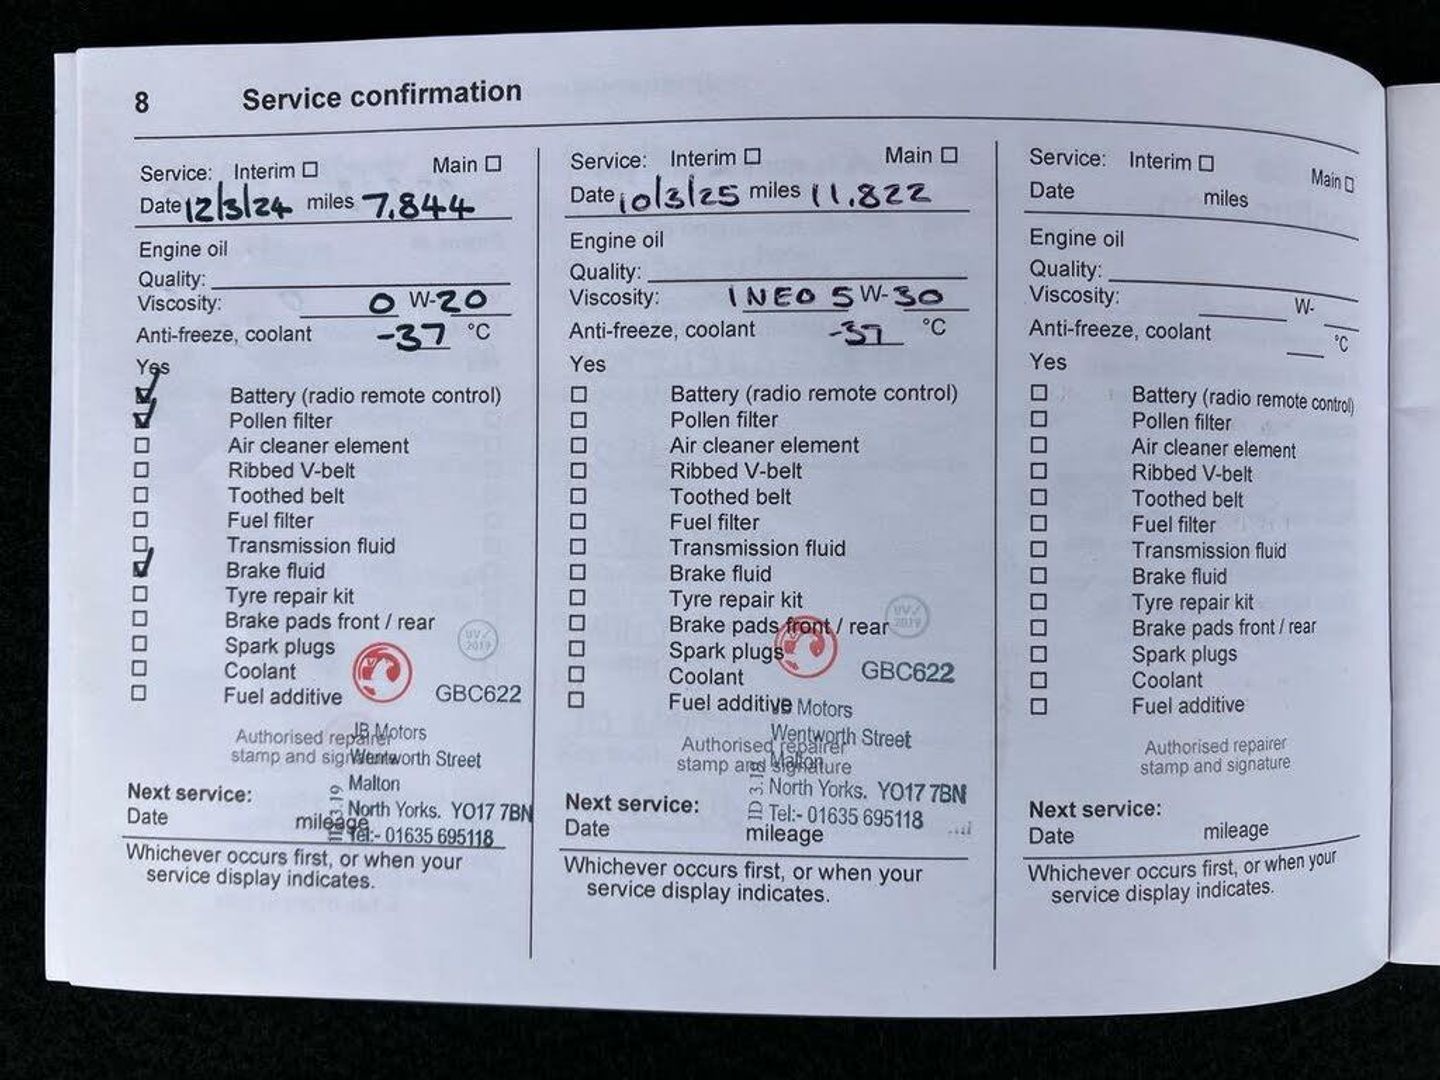 8 Service confirmation
Service: Interim ☐ Main ☐
Date 12/3/24 miles 7,844
Engine oil
Quality:
Viscosity: 0 W-20
Anti-freeze, coolant -37 °C
Yes
☑ Battery (radio remote control)
☑ Pollen filter
☐ Air cleaner element
☐ Ribbed V-belt
☐ Toothed belt
☐ Fuel filter
☐ Transmission fluid
☑ Brake fluid
☐ Tyre repair kit
☐ Brake pads front / rear
☐ Spark plugs
☐ Coolant
☐ Fuel additive
UV✓
2019
GBC622
Authorised repairer
stamp and signature
JB Motors
Wentworth Street
Malton
North Yorks. YO17 7BN
Tel:- 01635 695118
Next service:
Date mileage
Whichever occurs first, or when your
service display indicates.
Service: Interim ☐ Main ☐
Date 10/3/25 miles 11,822
Engine oil
Quality:
Viscosity: INEO 5 W-30
Anti-freeze, coolant -37 °C
Yes
☐ Battery (radio remote control)
☐ Pollen filter
☐ Air cleaner element
☐ Ribbed V-belt
☐ Toothed belt
☐ Fuel filter
☐ Transmission fluid
☐ Brake fluid
☐ Tyre repair kit
☐ Brake pads front / rear
☐ Spark plugs
☐ Coolant
☐ Fuel additive
UV✓
2019
GBC622
JB Motors
Wentworth Street
Malton
North Yorks. YO17 7BN
Tel:- 01635 695118
Authorised repairer
stamp and signature
Next service:
Date mileage
Whichever occurs first, or when your
service display indicates.
Service: Interim ☐ Main ☐
Date miles
Engine oil
Quality:
Viscosity: W-
Anti-freeze, coolant °C
Yes
☐ Battery (radio remote control)
☐ Pollen filter
☐ Air cleaner element
☐ Ribbed V-belt
☐ Toothed belt
☐ Fuel filter
☐ Transmission fluid
☐ Brake fluid
☐ Tyre repair kit
☐ Brake pads front / rear
☐ Spark plugs
☐ Coolant
☐ Fuel additive
Authorised repairer
stamp and signature
Next service:
Date mileage
Whichever occurs first, or when your
service display indicates.